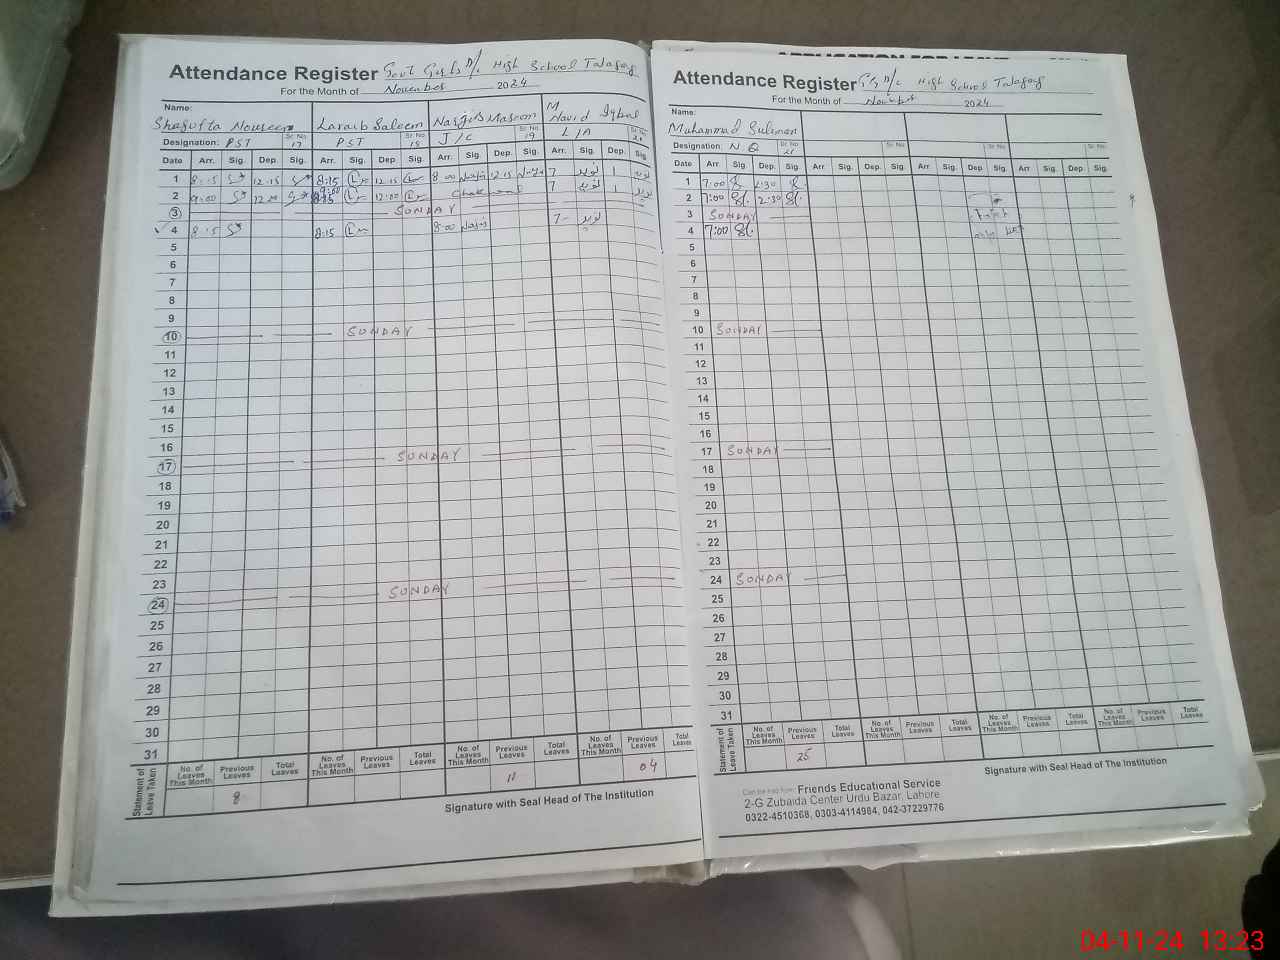 Attendance Register Govt Girls D/C High School Talagang
For the Month of November 2024
Name:
Shagufta Noureen Laraib Saleem Narjis Masoom M Navid Iqbal
Designation: PST Sr. No 17 PST Sr. No 18 J/C Sr. No 19 L/A Sr. No 20
Date Arr. Sig. Dep. Sig. Arr. Sig. Dep Sig. Arr. Sig. Dep. Sig. Arr. Sig. Dep. Sig.
1 8:15 12:15 8:15 12:15 8:00 12:15 7 نوید 1 نوید
2 9:00 12:00 9:00 12:00 7 نوید 1 نوید
3 SUNDAY
4 8:15 8:15 8:00 7- نوید
5
6
7
8
9
10 SUNDAY
11
12
13
14
15
16
17 SUNDAY
18
19
20
21
22
23
24 SUNDAY
25
26
27
28
29
30
31
Statement of Leave Taken
No. of Leaves This Month Previous Leaves Total Leaves No. of Leaves This Month Previous Leaves Total Leaves No. of Leaves This Month Previous Leaves Total Leaves No. of Leaves This Month Previous Leaves Total Leaves
8 11 04
Signature with Seal Head of The Institution
APPLICATION FOR LEAVE
Attendance Register GG D/C High School Talagang
For the Month of November 2024
Name:
Muhammad Suliman
Designation: N.Q Sr No 21 Sr No Sr No Sr No.
Date Arr. Sig. Dep. Sig. Arr. Sig. Dep. Sig. Arr. Sig. Dep Sig. Arr. Sig. Dep. Sig.
1 7:00 2:30
2 7:00 2:30
3 SUNDAY
4 7:00
5
6
7
8
9
10 SUNDAY
11
12
13
14
15
16
17 SUNDAY
18
19
20
21
22
23
24 SUNDAY
25
26
27
28
29
30
31
Statement of Leave Taken
No. of Leaves This Month Previous Leaves Total Leaves No. of Leaves This Month Previous Leaves Total Leaves No. of Leaves This Month Previous Leaves Total Leaves No. of Leaves This Month Previous Leaves Total Leaves
25
Signature with Seal Head of The Institution
Can be had from: Friends Educational Service
2-G Zubaida Center Urdu Bazar, Lahore
0322-4510368, 0303-4114984, 042-37229776
04-11-24 13:23